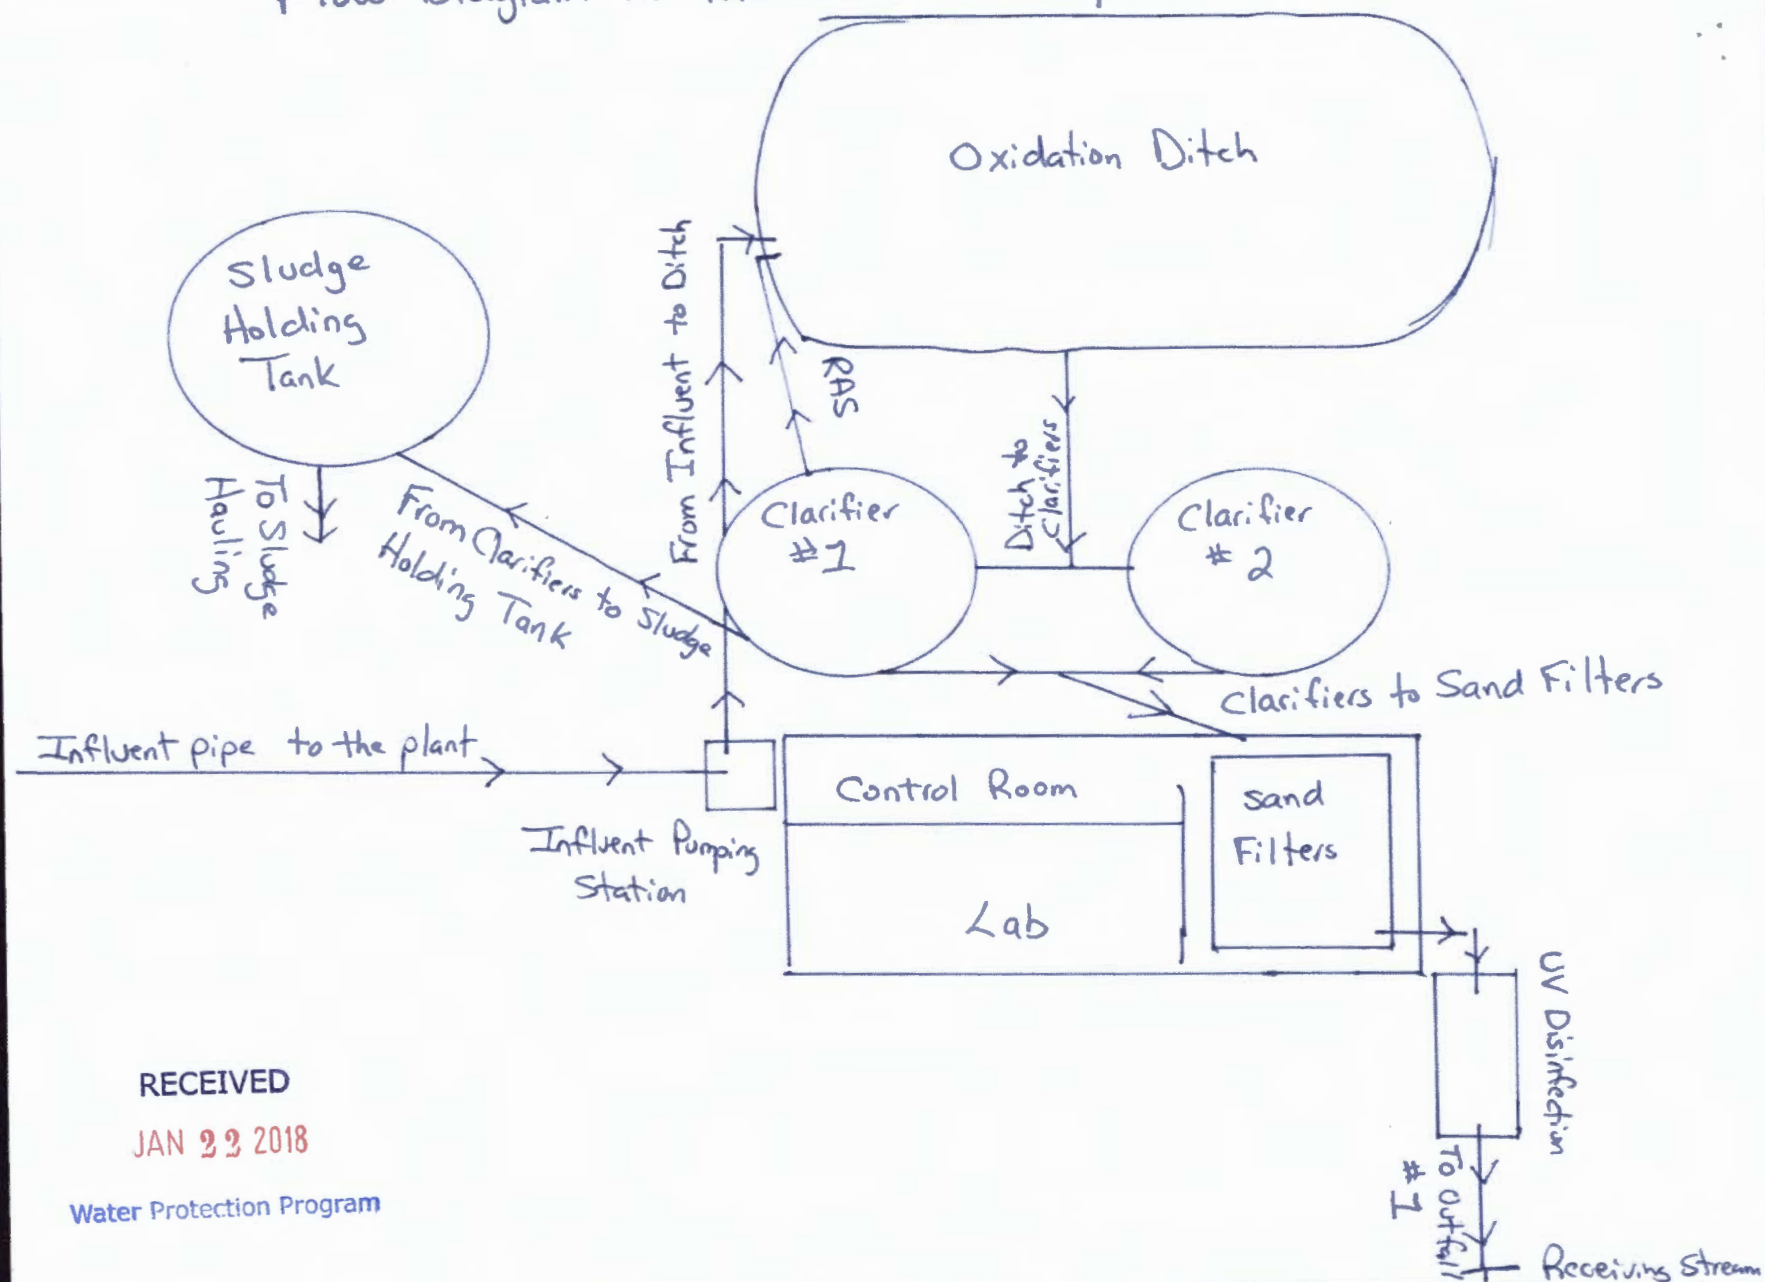 Flow Diagram
Oxidation Ditch
Sludge
Holding
Tank
From Influent to Ditch
RAS
Ditch to
Clarifiers
To Sludge
Hauling
From Clarifiers to Sludge
Holding Tank
Clarifier
#1
Clarifier
# 2
Clarifiers to Sand Filters
Influent pipe to the plant
Influent Pumping
Station
Control Room
Lab
Sand
Filters
UV Disinfection
To Outfall
#1
Receiving Stream
RECEIVED
JAN 22 2018
Water Protection Program